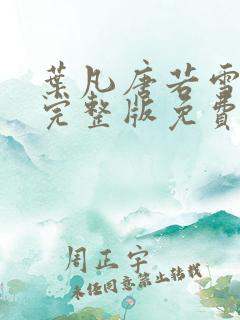 葉凡唐若雪
完整版免費
周正宇
未經同意禁止轉載